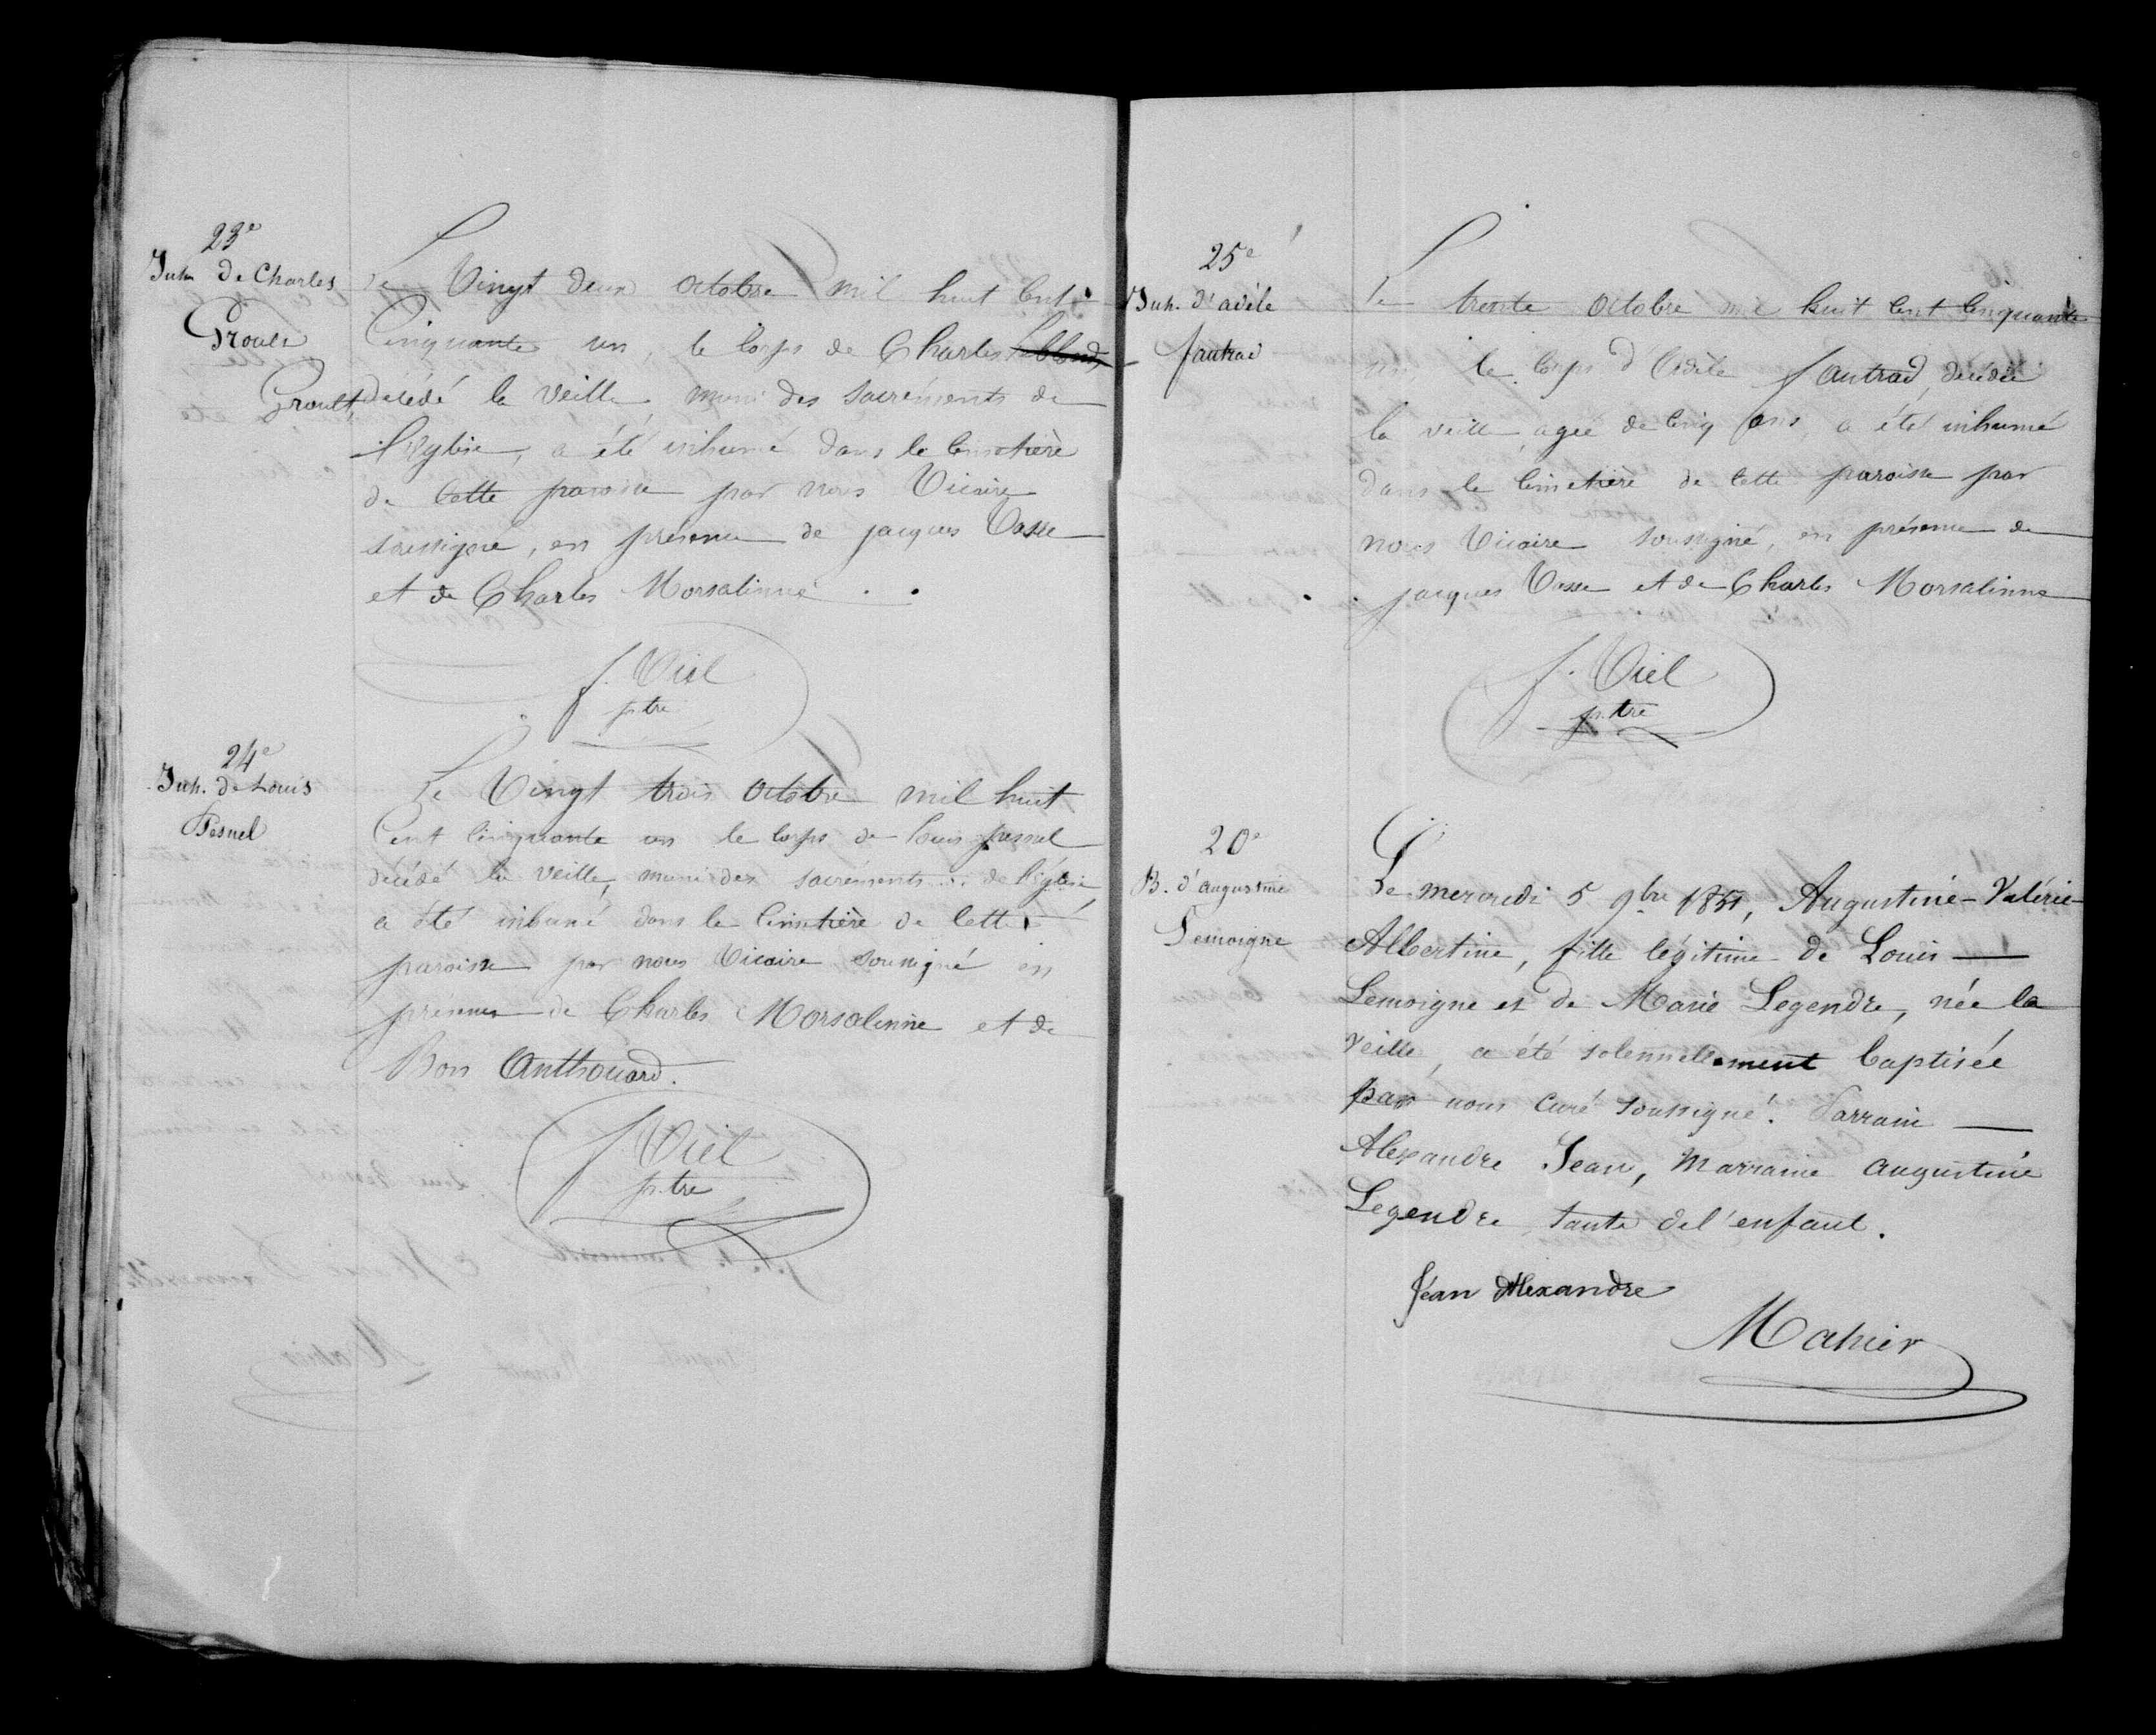 23e
Inh. de Charles
Groult
Le Vingt deux octobre mil huit Cent
Cinquante un, le Corps de Charles Leblond
Groult, décédé la veille, muni des sacréments de
l'Eglise, a été inhumé dans le Cimetière
de Cette paroisse par nous Vicaire
soussigné, en présence de jacques Vasse
et de Charles Morsalinne
J. Viel
ptre
24e
Inh. de Louis
Pesnel
Le Vingt trois octobre mil huit
Cent Cinquante un le Corps de Louis pesnel
décédé la veille, muni des sacréments de l'église,
a été inhumé dans le Cimetière de Cette
paroisse par nous Vicaire soussigné en
présence de Charles Morsalinne et de
Bon Anthouard.
J. Viel
ptre
25e
Inh. d'adèle
fautrad
Le trente octobre mil huit Cent Cinquante
un, le Corps d'Adèle fautrad, décédée
la veille, agée de Cinq ans, a été inhumé
dans le Cimetière de Cette paroisse par
nous Vicaire soussigné, en présence de
jacques Vasse et de Charles Morsalinne
J. Viel
ptre
20e
B. d'augustine
Lemoigne
Le mercredi 5 9bre 1851, Augustine-Valérie-
Albertine, fille légitime de Louis
Lemoigne et de Marie Legendre, née la
veille, a été solennellement baptisée
par nous curé soussigné. Parrain
Alexandre Jean, Marraine augustine
Legendre tante de l'enfant.
Jean Alexandre
Mahier